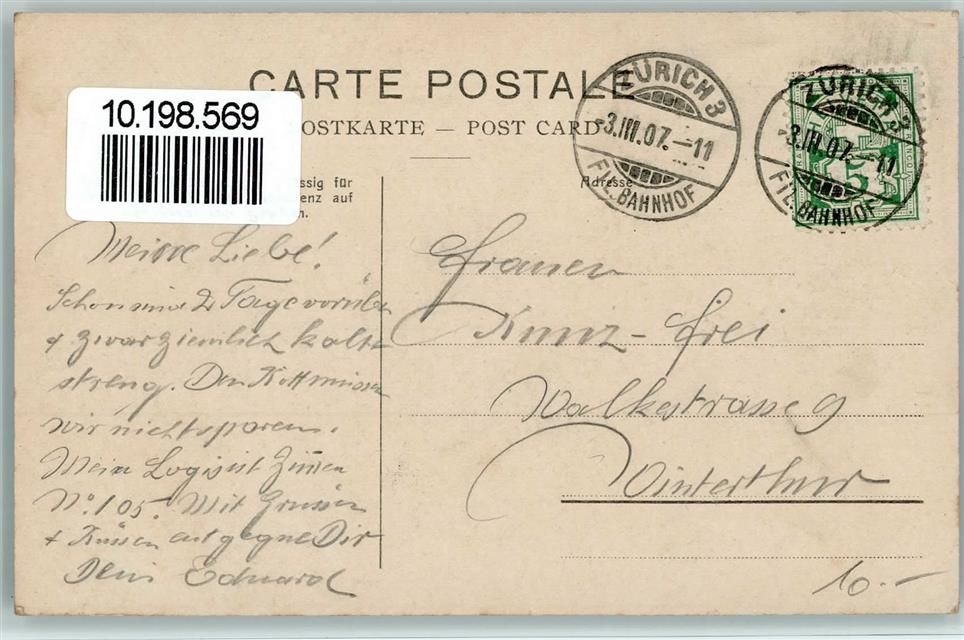 CARTE POSTALE
10.198.569
OSTKARTE — POST CARD
ZÜRICH 3
-3.III.07.-11
FIL. BAHNHOF
ZÜRICH 3
-3.III.07.-11
FIL. BAHNHOF
5
ssig für
enz auf
n.
Adresse
Meine Liebe!
Schon sind 2 Tage vorüber
& zwar ziemlich kalt
streng. Den Kott müssen
wir nicht sparen.
Mein Logis ist Zimmer
No. 105. Mit Grüssen
& Küssen entgegne Dir
Dein Eduard
Frauen
Kunz-Frei
Walkestrasse 9
Winterthur
10.-